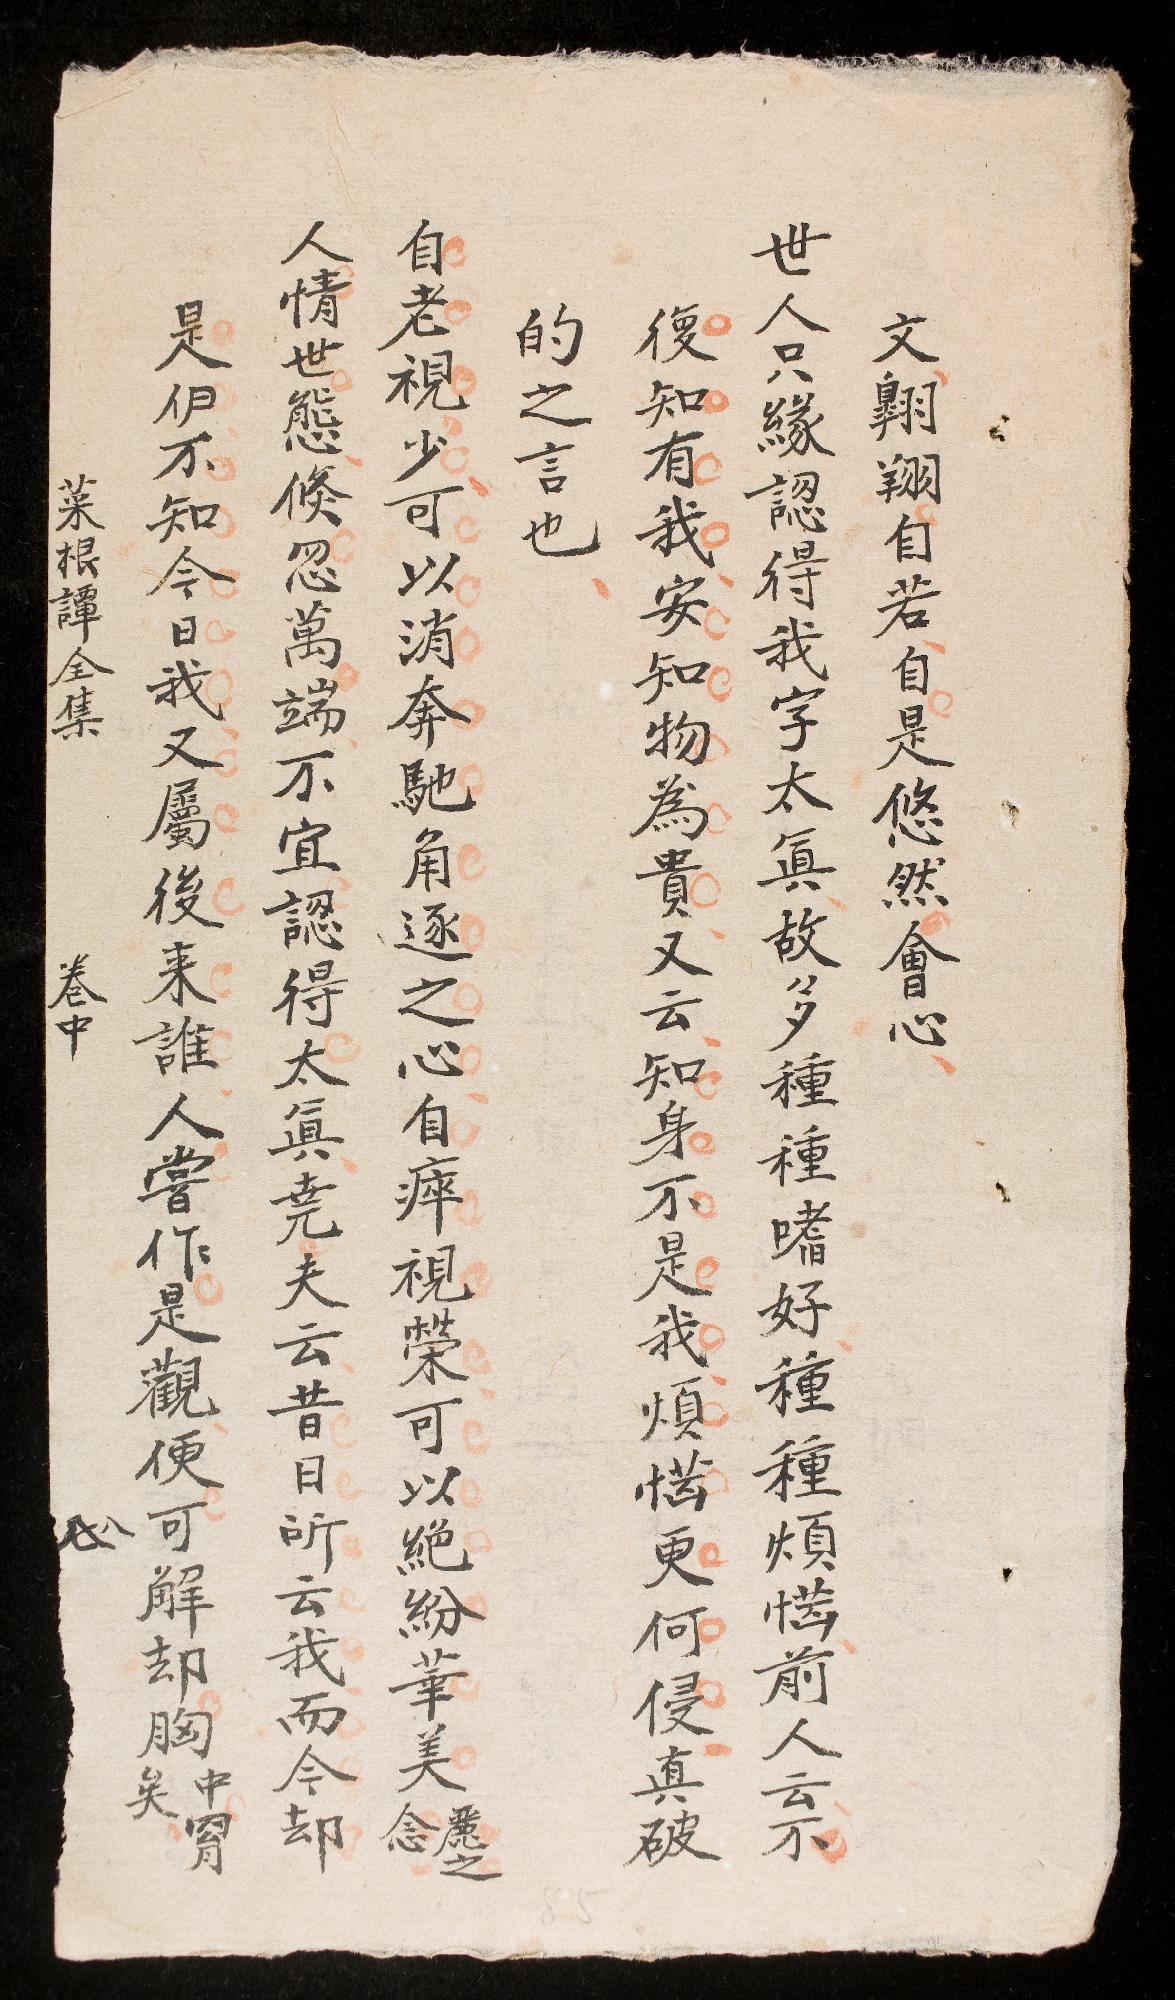 文翺翔自若自是悠然會心
世人只緣認得我字太眞故多種種嗜好種種煩惱前人云不
復知有我安知物為貴又云知身不是我煩惱更何侵真破
的之言也
自老視少可以消奔馳角逐之心自瘁視榮可以絕紛華美麗之念
人情世態倏忽萬端不宜認得太眞堯夫云昔日所云我而今却
是伊不知今日我又屬後来誰人嘗作是觀便可解却胸中罥矣
菜根譚全集
卷中
八
85